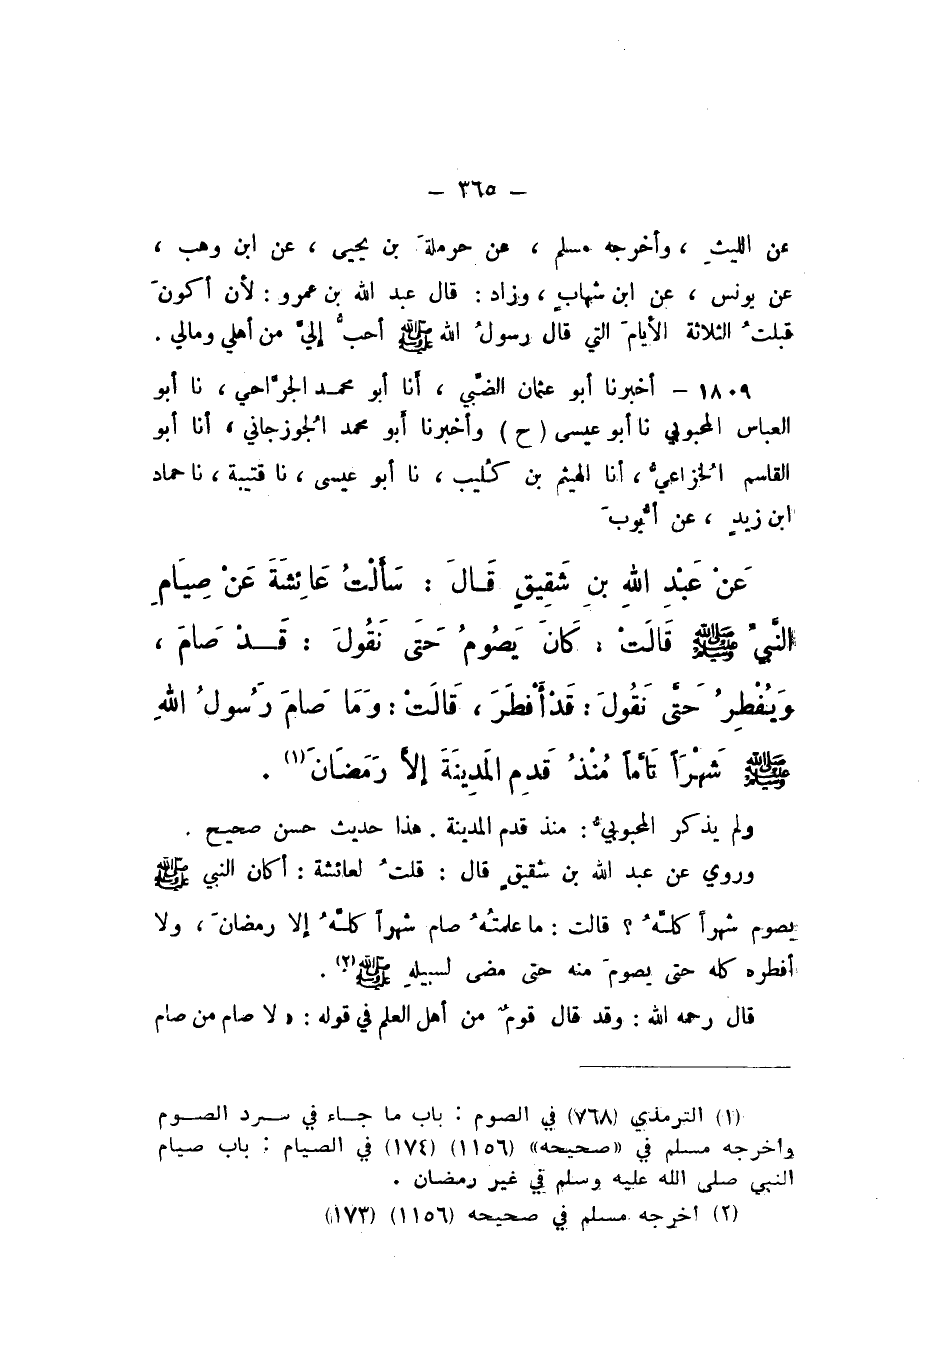 – ٣٦٥ –
عن الليثِ ، وأخرجه مسلم ، عن حرملةَ بن يحيى ، عن ابن وهب ،
عن يونس ، عن ابن شهابٍ ، وزاد : قال عبد الله بن عمرو : لأن أكونَ
قبلتُ الثلاثة الأيامَ التي قال رسولُ الله ﷺ أحبُّ إليَّ من أهلي ومالي .
١٨٠٩ – أخبرنا أبو عثمان الضبِّي ، أنا أبو محمد الجرَّاحي ، نا أبو
العباس المحبوبي نا أبو عيسى ( ح ) وأخبرنا أبو محمد الجُوزجاني ، أنا أبو
القاسم الخُزاعيُّ ، أنا الهيثم بن كُليب ، نا أبو عيسى ، نا قتيبة ، نا حماد
ابن زيدٍ ، عن أيُّوبَ
عَنْ عَبْدِ اللهِ بنِ شَقِيقٍ قَالَ : سَأَلْتُ عَائِشَةَ عَنْ صِيَامِ
النَّبِيِّ ﷺ قَالَتْ : كَانَ يَصُومُ حَتَّى نَقُولَ : قَدْ صَامَ ،
وَيُفْطِرُ حَتَّى نَقُولَ : قَدْ أَفْطَرَ ، قَالَتْ : وَمَا صَامَ رَسُولُ اللهِ
ﷺ شَهْرَاً تَامّاً مُنْذُ قَدِمَ المَدِينَةَ إلاَّ رَمَضَانَ (١) .
ولم يذكر المحبوبيُّ : منذ قدم المدينة . هذا حديث حسن صحيح .
وروي عن عبد الله بن شقيقٍ قال : قلتُ لعائشة : أكان النبي ﷺ
يصوم شهراً كلَّهُ ؟ قالت : ما علمتُهُ صام شهراً كلَّهُ إلا رمضانَ ، ولا
أفطره كله حتى يصومَ منه حتى مضى لسبيلهِ ﷺ (٢) .
قال رحمه الله : وقد قال قومٌ من أهل العلم في قوله : « لا صام من صام
(١) الترمذي (٧٦٨) في الصوم : باب ما جاء في سرد الصوم
وأخرجه مسلم في «صحيحه» (١١٥٦) (١٧٤) في الصيام : باب صيام
النبي صلى الله عليه وسلم في غير رمضان .
(٢) أخرجه مسلم في صحيحه (١١٥٦) (١٧٣)